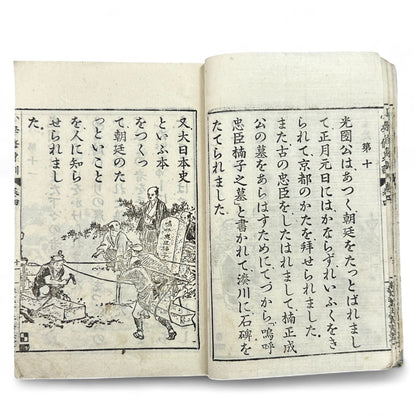 第十
光圀公はあつく朝廷をたつとばれまし
て正月元日にはかならずれいふくをき
られて、京都のかたを拜せられました。
また古の忠臣をしたはれまして楠正成
公の墓をあらはすためにてづから「嗚呼
忠臣楠子之墓」と書かれて湊川に石碑を
たてられました。
又大日本史
といふ本
をつくつ
て朝廷のた
つといこと
を人に知ら
せられまし
た。